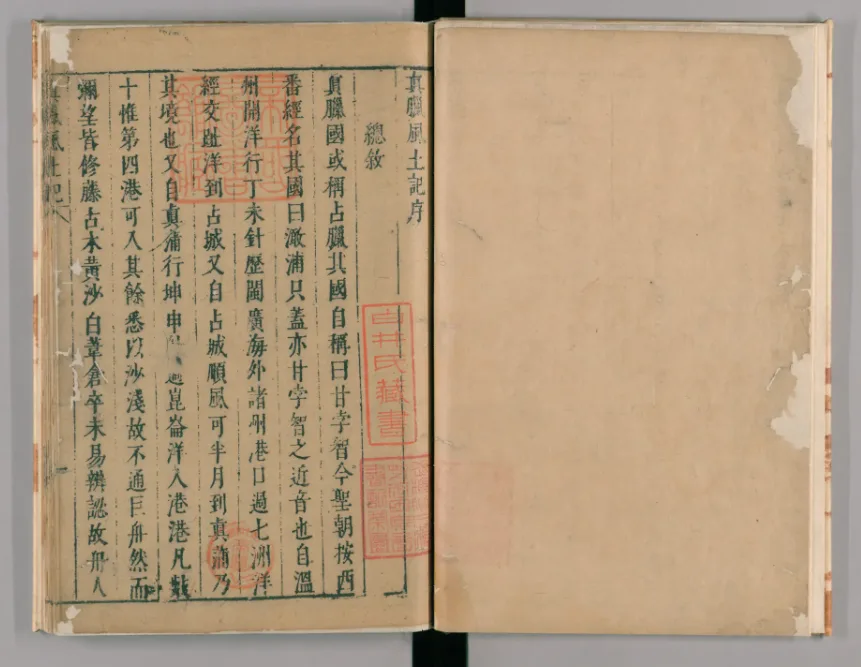 真臘風土記序
總敘
真臘國或稱占臘其國自稱曰甘孛智今聖朝按西
番經名其國曰澉浦只蓋亦甘孛智之近音也自溫
州開洋行丁未針歷閩廣海外諸州港口過七洲洋
經交趾洋到占城又自占城順風可半月到真蒲乃
其境也又自真蒲行坤申過崑崙洋入港港凡數
十惟第四港可入其餘悉以沙淺故不通巨舟然而
彌望皆修藤古木黃沙白葦倉卒未易辨認故舟人
真臘風土記
臼井氏藏書